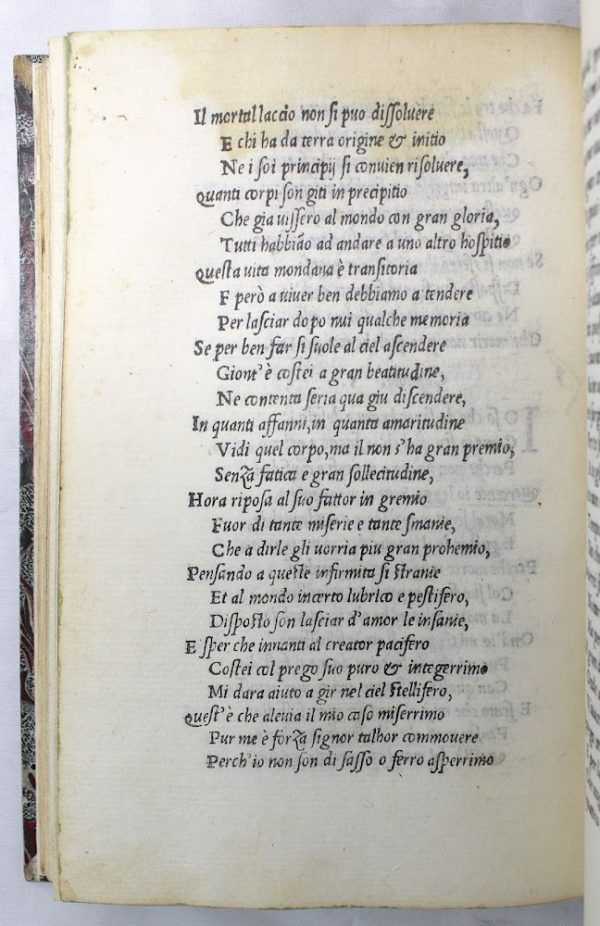 Il mortal laccio non si puo dissoluere
E chi ha da terra origine & initio
Ne i soi principij si conuien risoluere,
Quanti corpi son giti in precipitio
Che gia uissero al mondo con gran gloria,
Tutti habbião ad andare a uno altro hospitio
Questa vita mondana è transitoria
E però a viuer ben debbiamo a tendere
Per lasciar dopo nui qualche memoria
Se per ben far si suole al ciel ascendere
Giont'è costei a gran beatitudine,
Ne contenta seria qua giu discendere,
In quanti affanni, in quanta amaritudine
Vidi quel corpo, ma il non s'ha gran premio,
Senza fatica e gran sollecitudine,
Hora riposa al suo fattor in gremio
Fuor di tante miserie e tante smanie,
Che a dirle gli uorria piu gran prohemio,
Pensando a queste infirmita si stranie
Et al mondo incerto lubrico e pestifero,
Disposto son lasciar d'amor le insanie,
E sper che innanti al creator pacifero
Costei col prego suo puro & integerrimo
Mi dara aiuto a gir nel ciel stellifero,
Quest'è che aleuia il mio caso miserrimo
Pur me è forza signor talhor commouere
Perch'io non son di sasso o ferro asperrimo